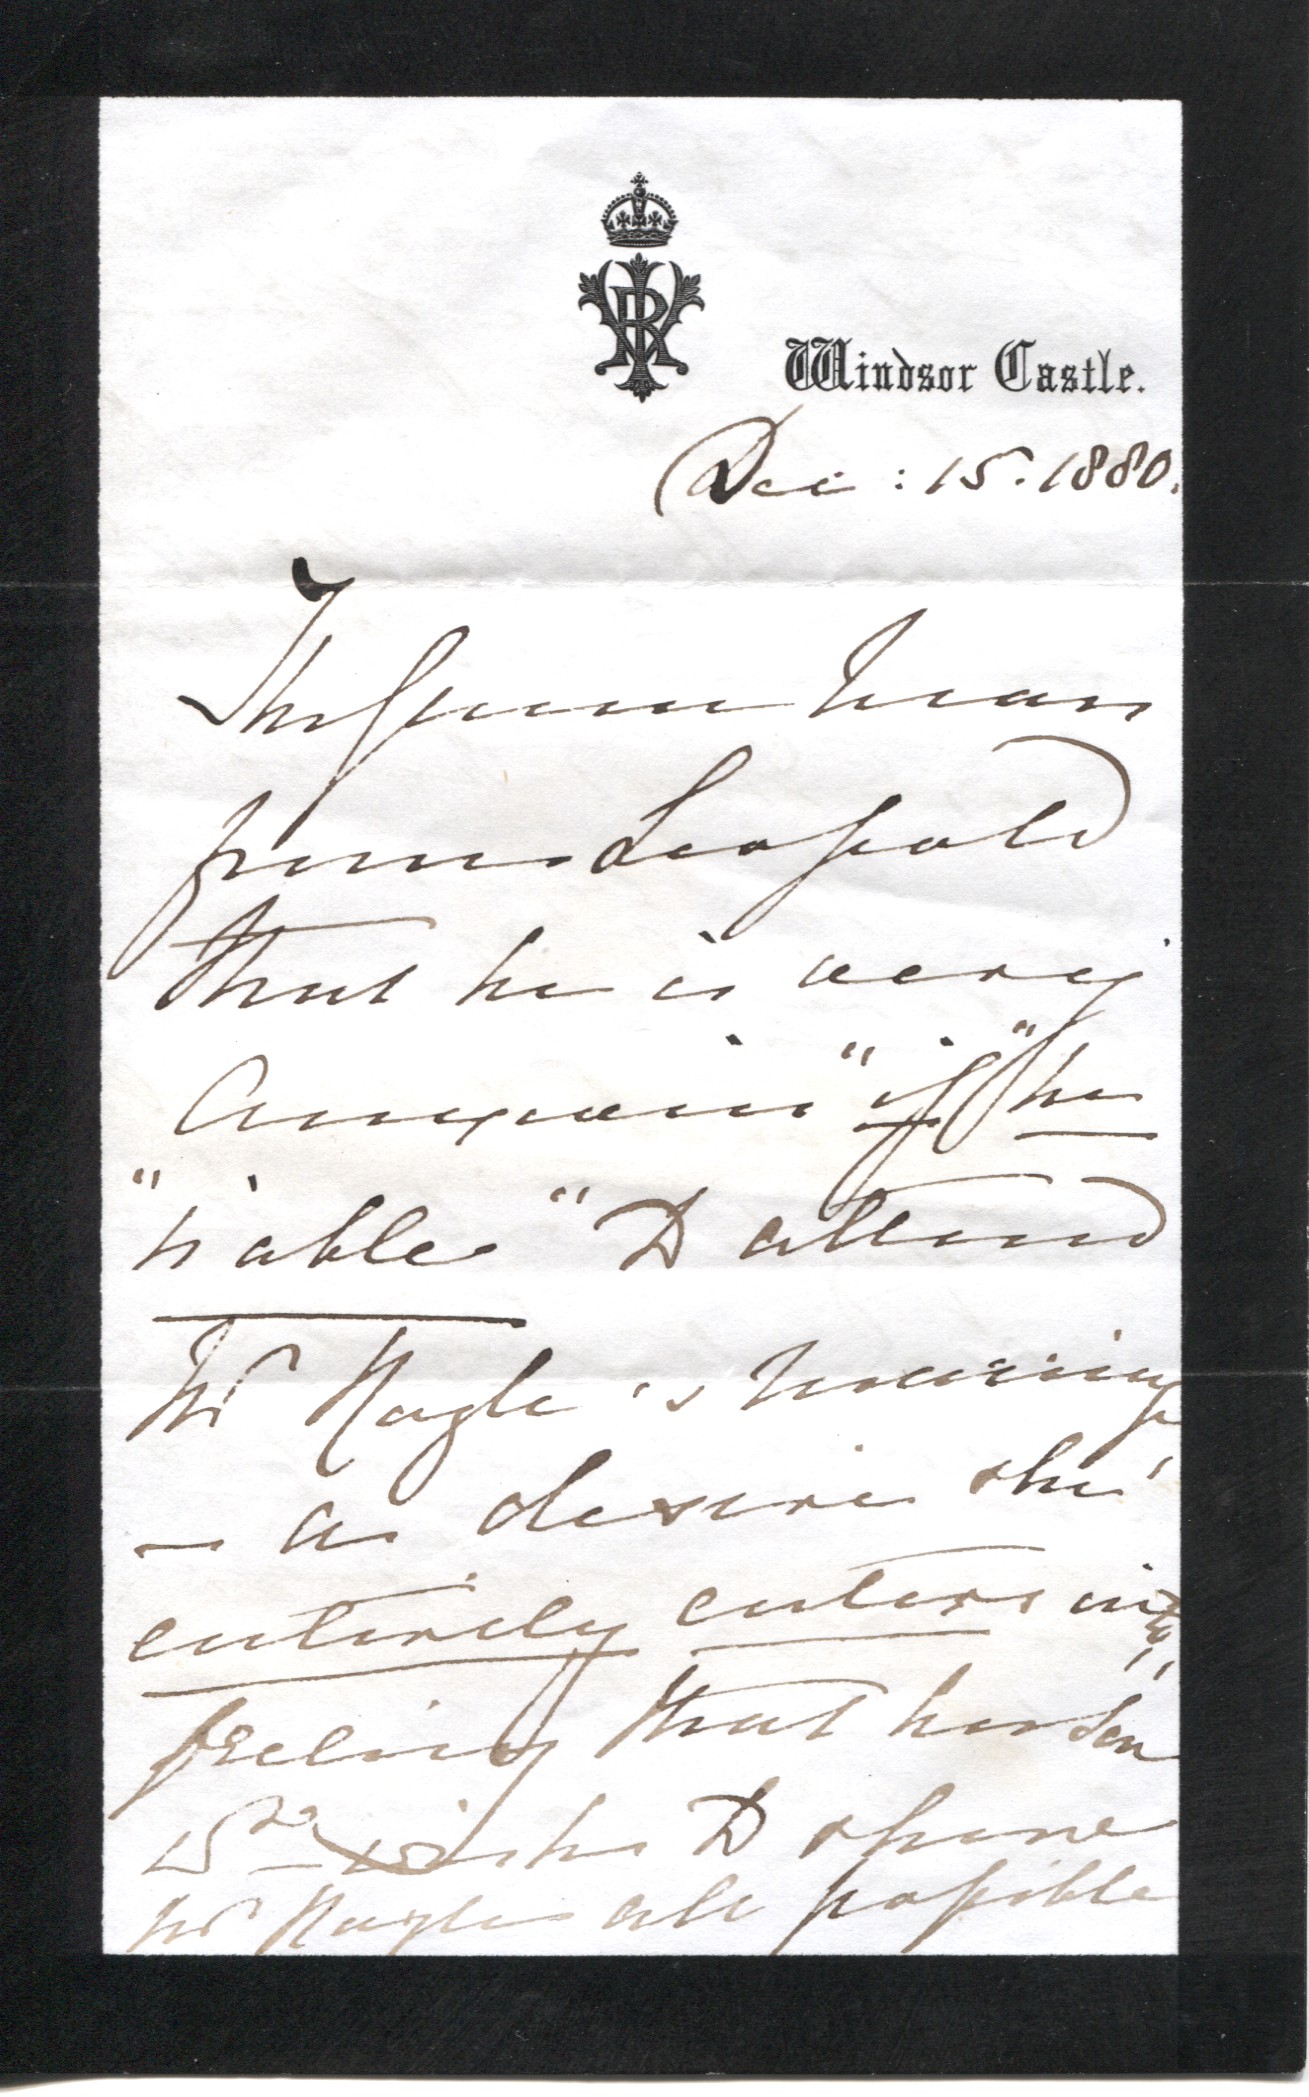 VRI
Windsor Castle.
Dec: 15. 1880.
The Queen hears
from Leopold
that he is very
anxious "if" he
"is able" to attend
Mr Nagle's hearing
– a desire she
entirely enters into
feeling that her Son
wd – wish to shine
Mr Nagle all possible